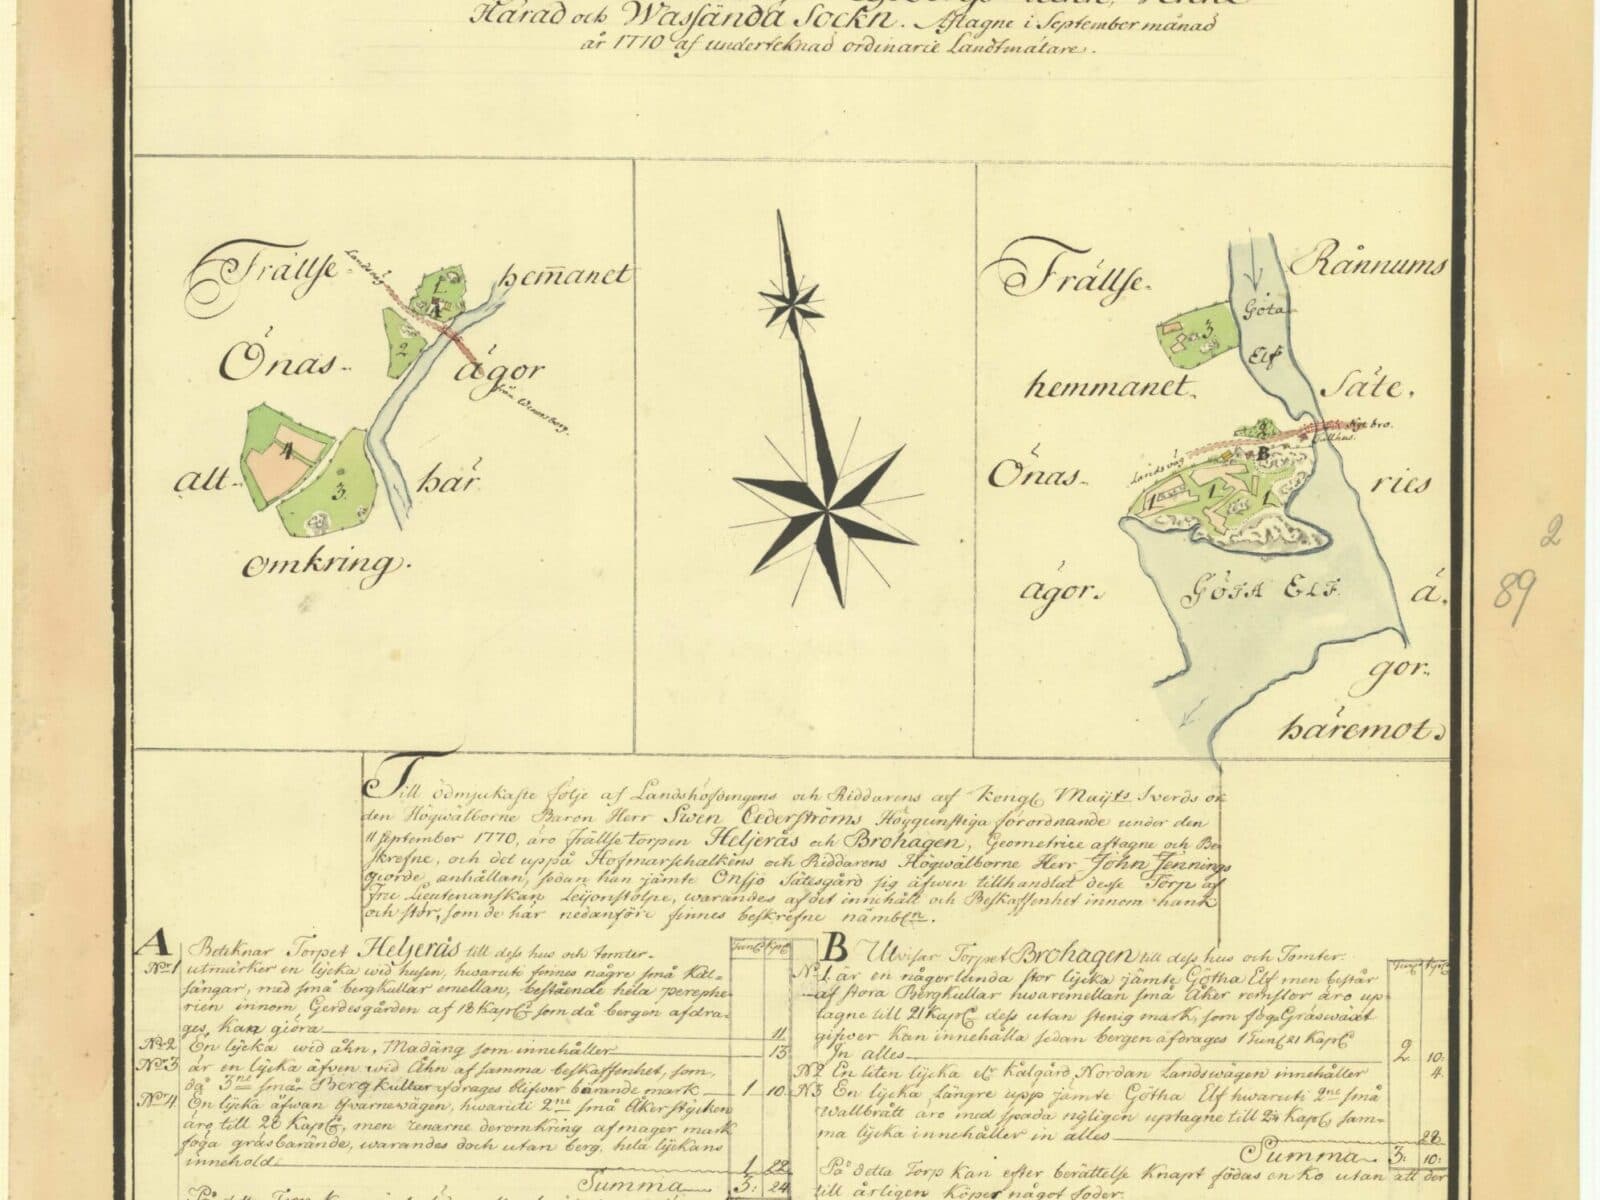 Härad och Wassända Sockn. Aftagne i September månad
år 1770 af underteknad ordinarie Landtmätare.
Frällse
hemanet
Landsväg
Önas
ägor
från Wenersberg.
alt
här
omkring.
A
1
2
3
4
Frällse
Rånnums
Göta
Elf
hemmanet
Säte
Nye bro.
Tullhus.
Landsväg
Önas
ries
ägor.
GÖTA ELF.
ä
gor
häremot.
B
1
1
1
2
3
2
89
Till ödmjukaste följe af Landshöfdingens och Riddarens af Kongl Mayts Swerds or
den Högwälborne Baron Herr Swen Cederströms Höggunstiga förordnande under den
11 September 1770, äro Frällse torpen Heljerås och Brohagen, Geometrice aftagne och Be
skrefne, och det uppå Hofmarschalkens och Riddarens Högwälborne Herr John Jennings
giorde anhållan, sedan han jämte Onsjö Sätesgård sig äfwen tillhandlat desse Torp af
Fru Lieutenanskan Leijonstolpe, warandes af det innehålt och Beskaffenhet innom hank
och stör, som de här nedanföre finnes beskrefne nämbln.
A Beteknar Torpet Heljerås till dess hus och tomter.
Tunl Kapl
No 1 utmärker en lycka wid husen, hwaruti finnes någre små Kål-
sängar, med små bergkullar emellan, bestående hela perephe
rien innom Gerdesgården af 18 Kapl som då bergen afdra-
ges, kan giöra 11
No 2 En lycka wid åhn, Madäng som innehåller 13
No 3 är en lycka äfven wid Åhn af samma beskaffenhet, som,
då 3ne små Bergkullar afdrages blifwer bärande mark 1 10
No 4 En lycka äfwan Qwarnewägen, hwaruti 2ne små Åkerstycken
äro till 28 Kapl, men renarne deromkring af mager mark
föga gräsbärande, warandes doch utan berg, hela lyckans
innehold 1 22
Summa 3: 24
B Utwisar Torpet Brohagen till dess hus och Tomter.
Tunl Kapl
No 1 är en någorlunda stor lycka jämte Götha Elf men består
af stora Bergkullar hwaremellan små Åker remsor äro up
tagne till 21 Kapl dess utan stenig mark, som föga Gräswäxt
gifwer kan innehålla sedan bergen afdrages 1 Tunl 21 Kapl
In alles 2 10
N 2 En liten lycka el Kålgård, Nordan Landswägen innehåller 4
N 3 En lycka längre upp jämte Götha Elf hwaruti 2ne små
wallbrått äro med spada nyligen uptagne till 24 Kapl, sam-
ma lycka innehåller in alles 28
Summa 3: 10:
På detta Torp kan efter berättelse knapt födas en ko utan att der
till årligen köpes något foder.